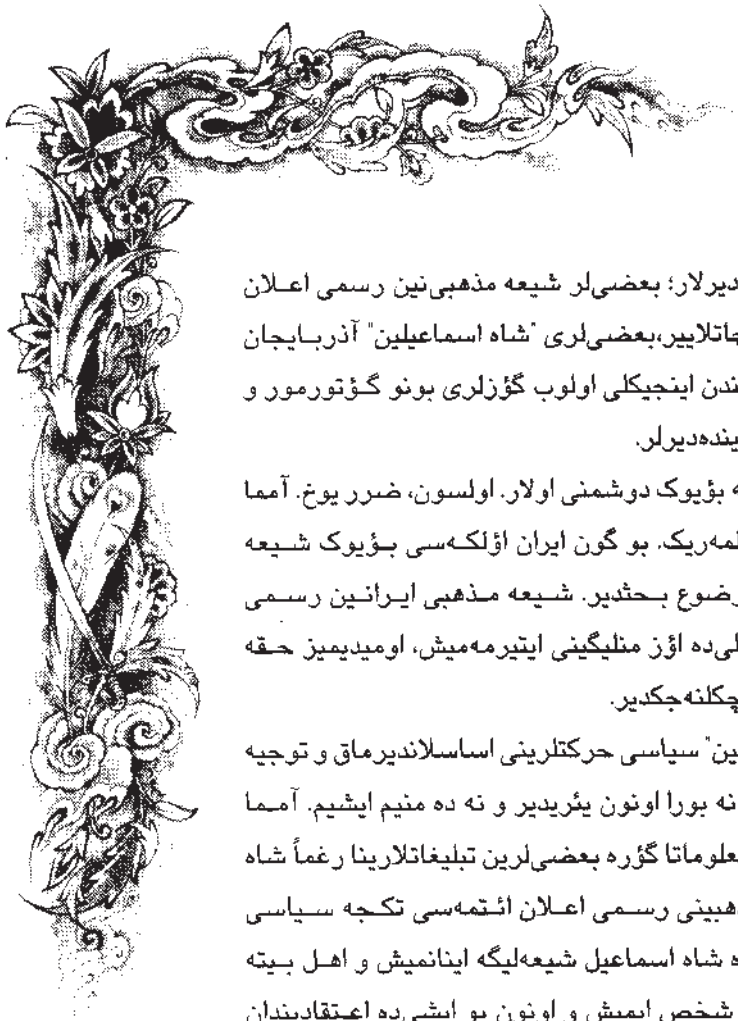 دیرلار؛ بعضی‌لر شیعه مذهبی‌نین رسمی اعـلان
چاتلاییر،بعضی‌لری "شاه اسماعیلین" آذربـایجان
ندن اینجیکلی اولوب گؤزلری بونو گـؤتورمور و
ینده‌دیرلر.
ه بؤیوک دوشمنی اولار. اولسون، ضرر یوخ. آمما
لمه‌ریک. بو گون ایران اؤلکـه‌سی بـؤیوک شـیعه
رضوع بـحثدیر. شـیعه مـذهبی ایـرانـین رسـمی
لی‌ده اؤز منلیگینی ایتیرمه‌میش، اومیدیمیز حـقه
چکلنه‌جکدیر.
ین" سیاسی حرکتلرینی اساسلاندیرماق و توجیه
نه بورا اونون یئریدیر و نه ده منیم ایشیم. آمـما
علوماتا گؤره بعضی‌لرین تبلیغاتلارینا رغماً شاه
هبینی رسـمی اعـلان ائـتمه‌سی تکـجه سـیاسی
ه شاه اسماعیل شیعه‌لیگه اینانمیش و اهـل بـیته
شخص ایمیش و اونون بو ایشی‌ده اعـتقادیندان